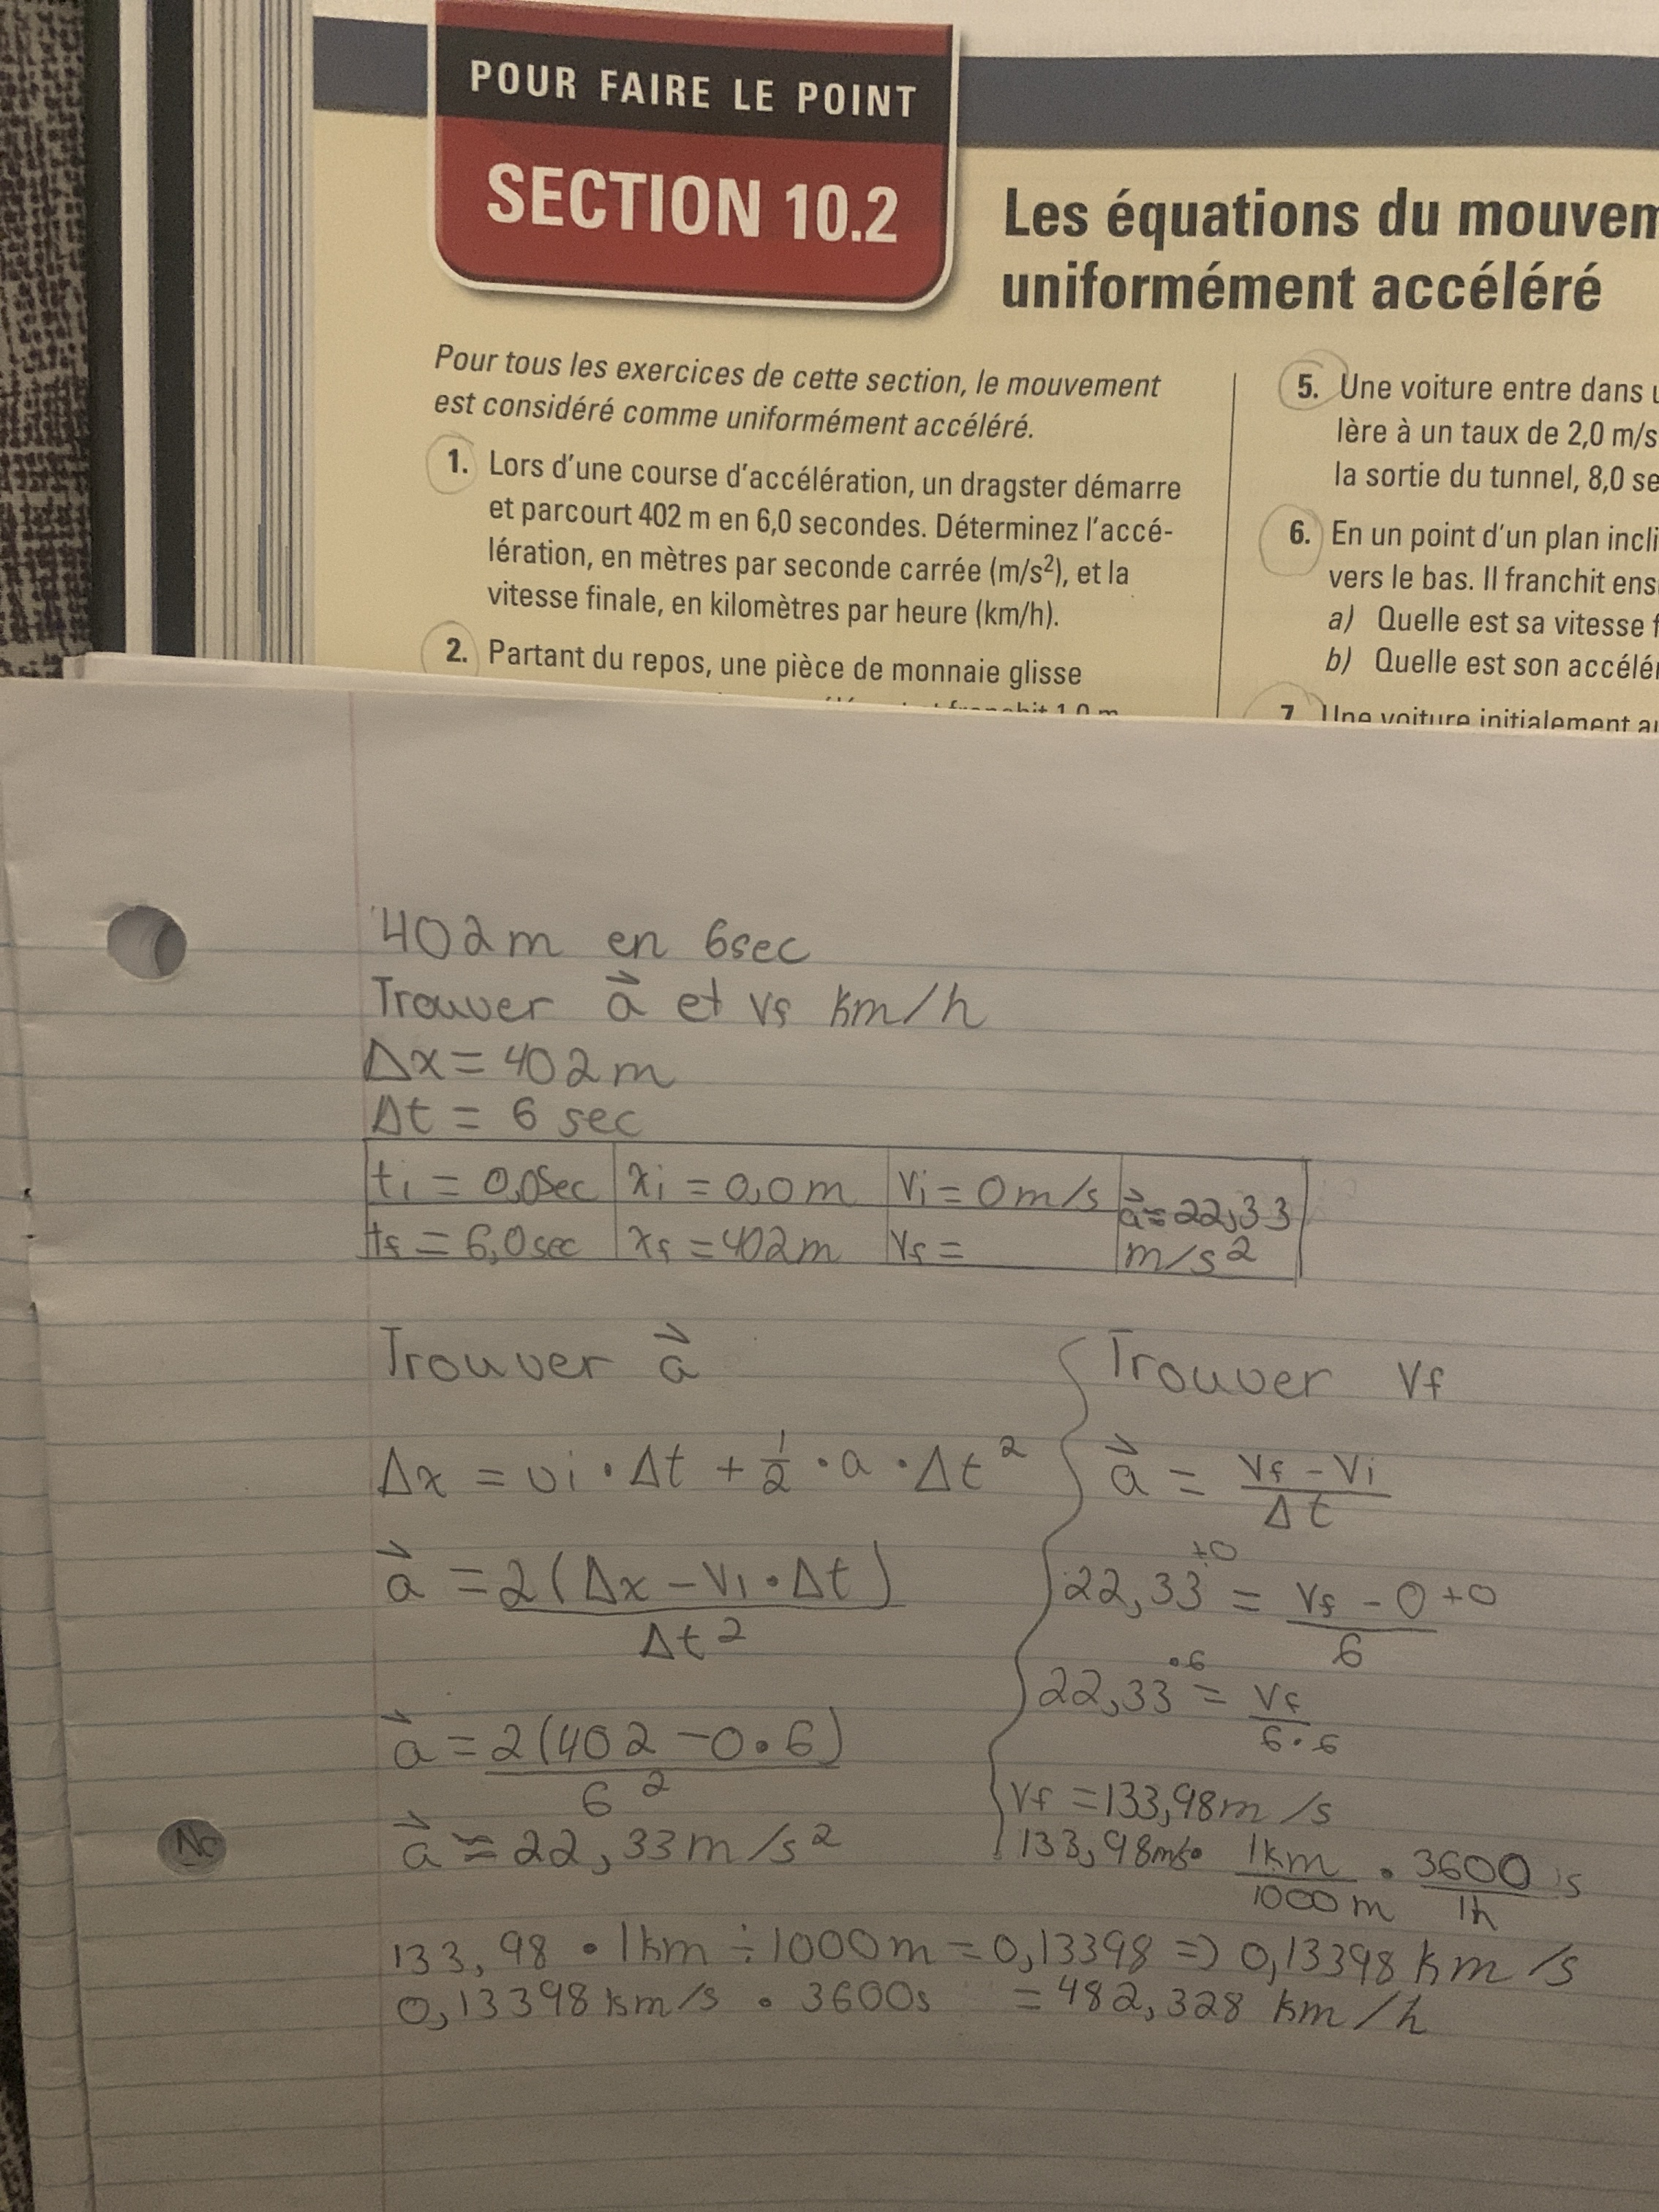 POUR FAIRE LE POINT
SECTION 10.2
Les équations du mouvem
uniformément accéléré
Pour tous les exercices de cette section, le mouvement
est considéré comme uniformément accéléré.
1. Lors d'une course d'accélération, un dragster démarre
et parcourt 402 m en 6,0 secondes. Déterminez l'accé-
lération, en mètres par seconde carrée (m/s²), et la
vitesse finale, en kilomètres par heure (km/h).
2. Partant du repos, une pièce de monnaie glisse
5. Une voiture entre dans u
lère à un taux de 2,0 m/s
la sortie du tunnel, 8,0 se
6. En un point d'un plan incli
vers le bas. Il franchit ens
a) Quelle est sa vitesse f
b) Quelle est son accélér
7. Une voiture initialement au
402m en 6sec
Trouver a⃗ et vf km/h
Δx = 402m
Δt = 6 sec
ti = 0,0sec xi = 0,0m vi = 0m/s a⃗≈22,33
tf = 6,0sec xf = 402m vf = m/s²
Trouver a⃗
Δx = vi · Δt + 1/2 · a · Δt²
a⃗ = 2(Δx - vi · Δt)
Δt²
a⃗ = 2(402 - 0 · 6)
6²
a⃗ ≈ 22,33m/s²
Trouver vf
a⃗ = vf - vi
Δt
+0
22,33 = vf - 0 +0
6
·6
22,33 = vf
6 · 6
vf = 133,98m/s
133,98m/s · 1km · 3600 s
1000m 1h
133,98 · 1km ÷ 1000m = 0,13398 => 0,13398 km/s
0,13398 km/s · 3600s = 482,328 km/h
Nc